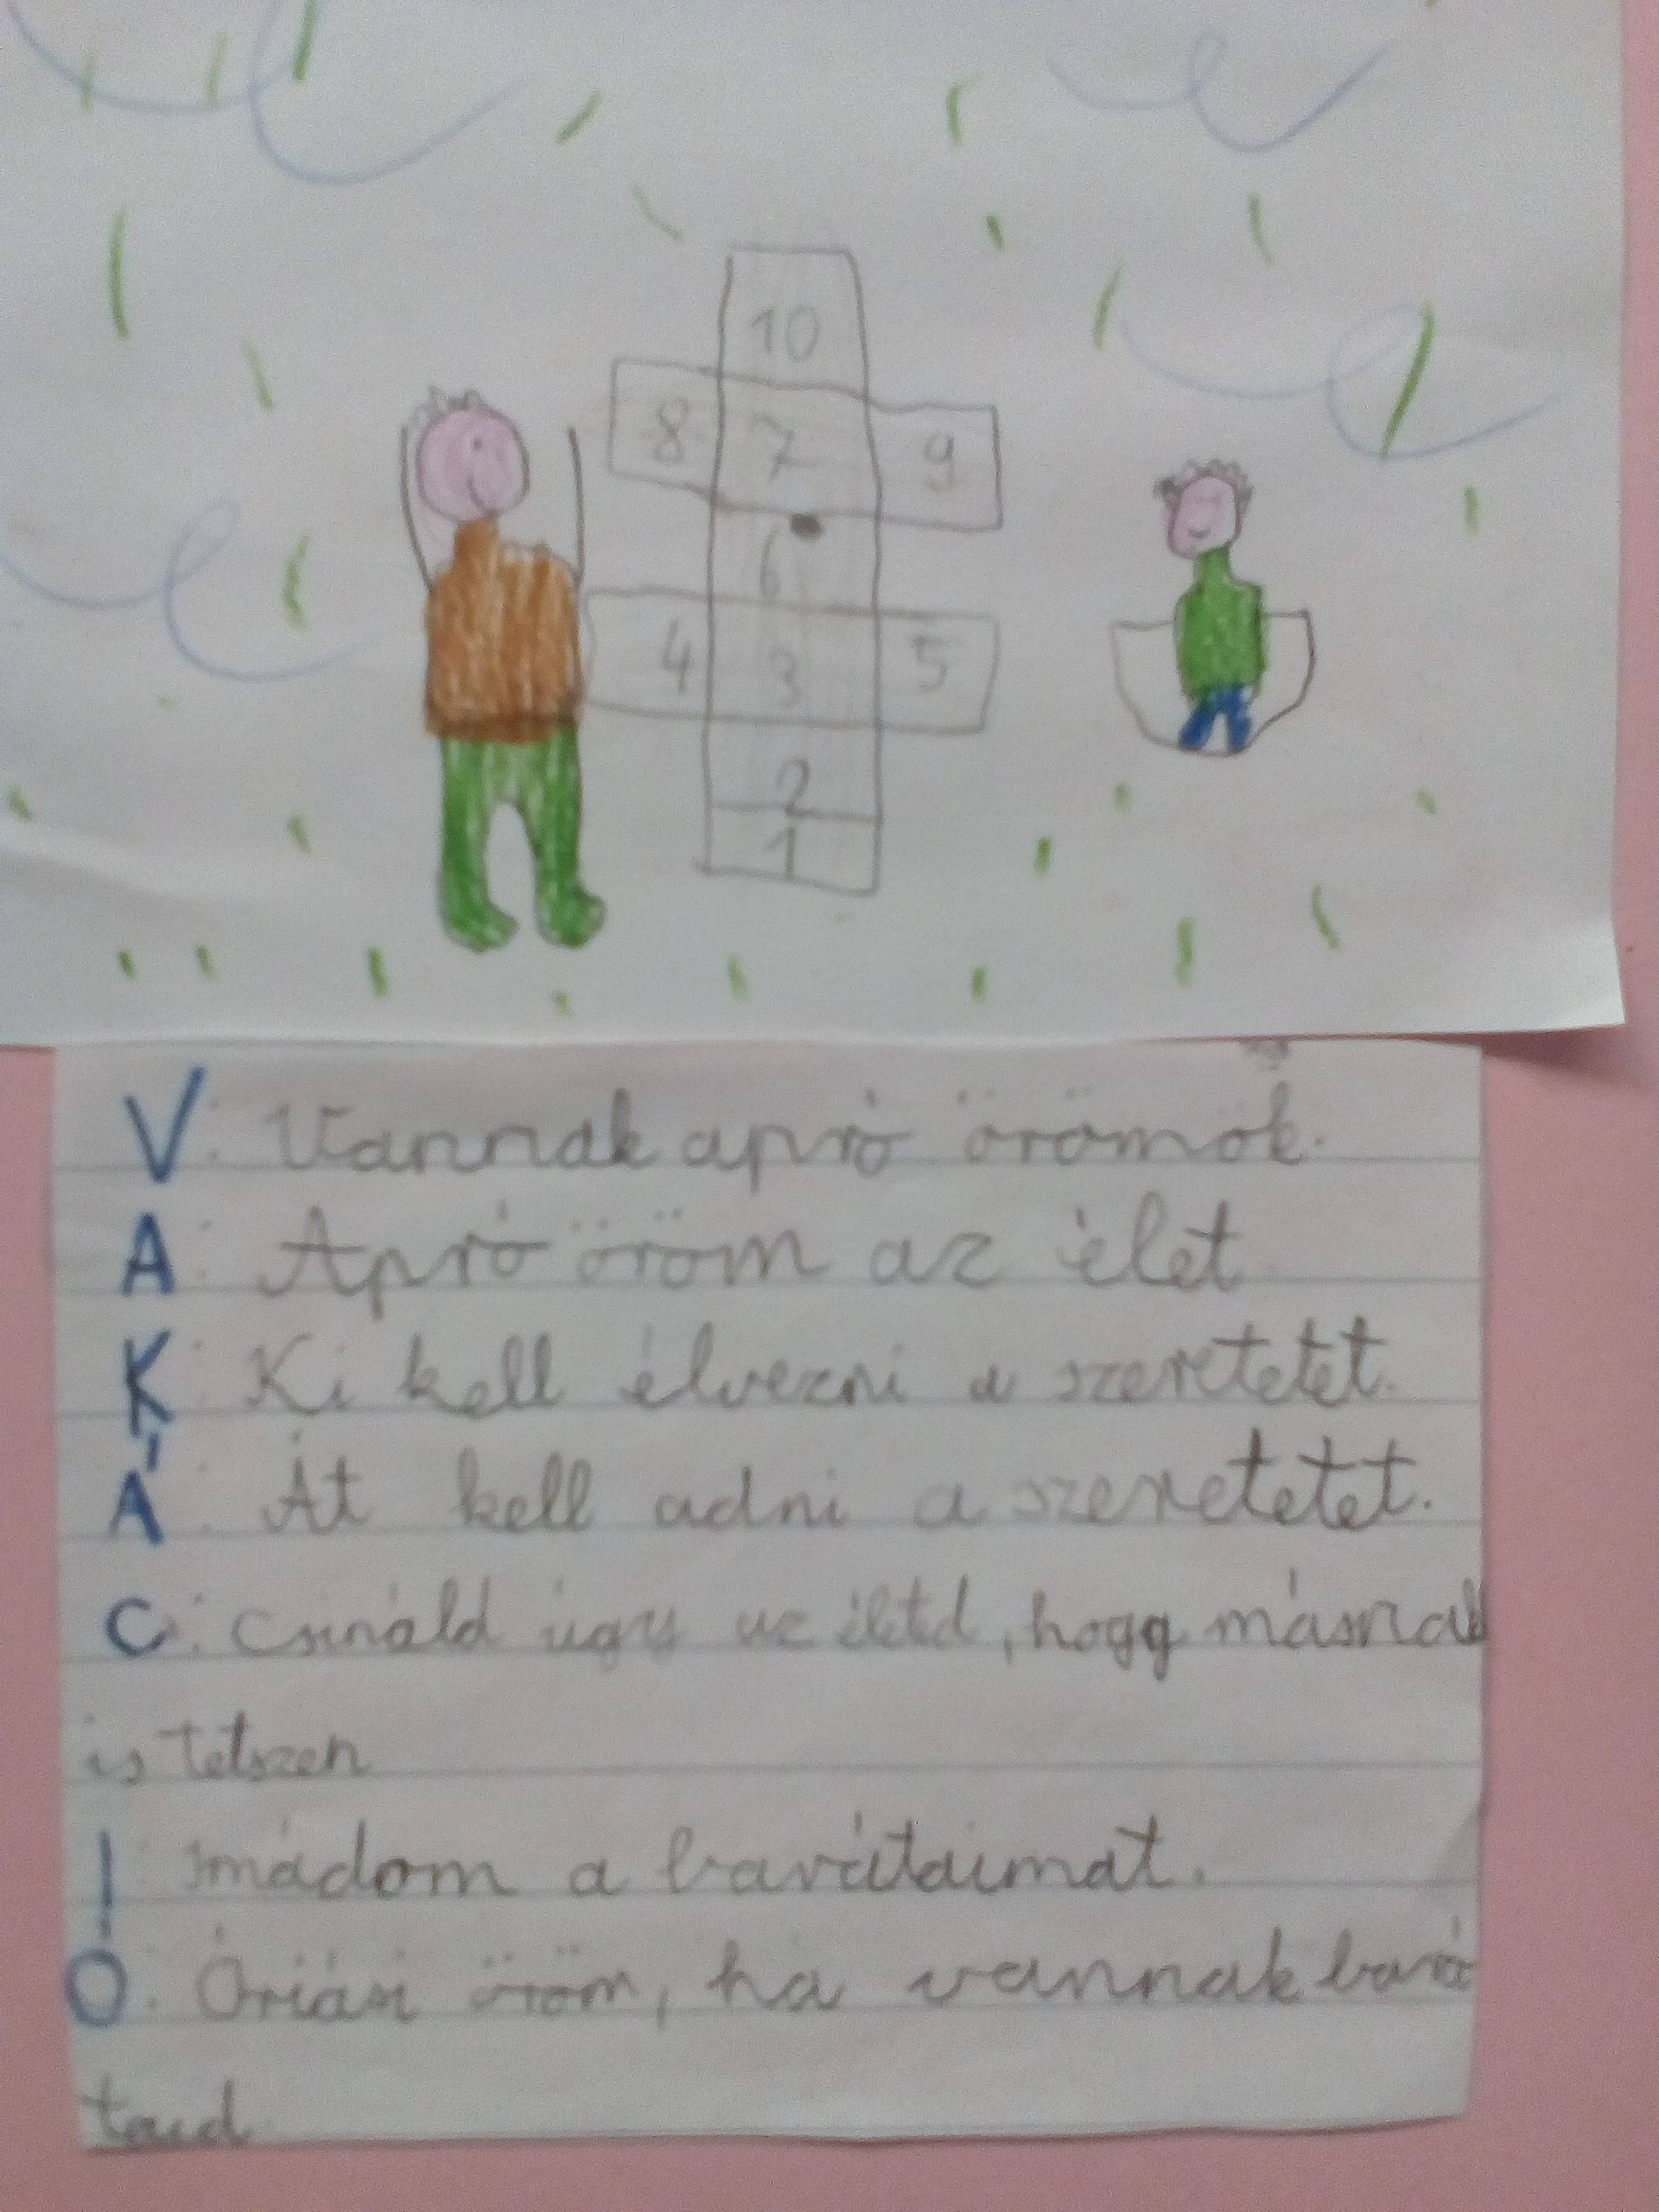 10
8 7 9
6
4 3 5
2
1
V: Vannak apró örömök.
A: Apró öröm az élet
K: Ki kell élvezni a szeretetet.
Á: Át kell adni a szeretetet.
C: Csináld úgy az élted, hogy másnak
is tetszen
I: Imádom a barátaimat.
O: Óriási öröm, ha vannak bará
taid